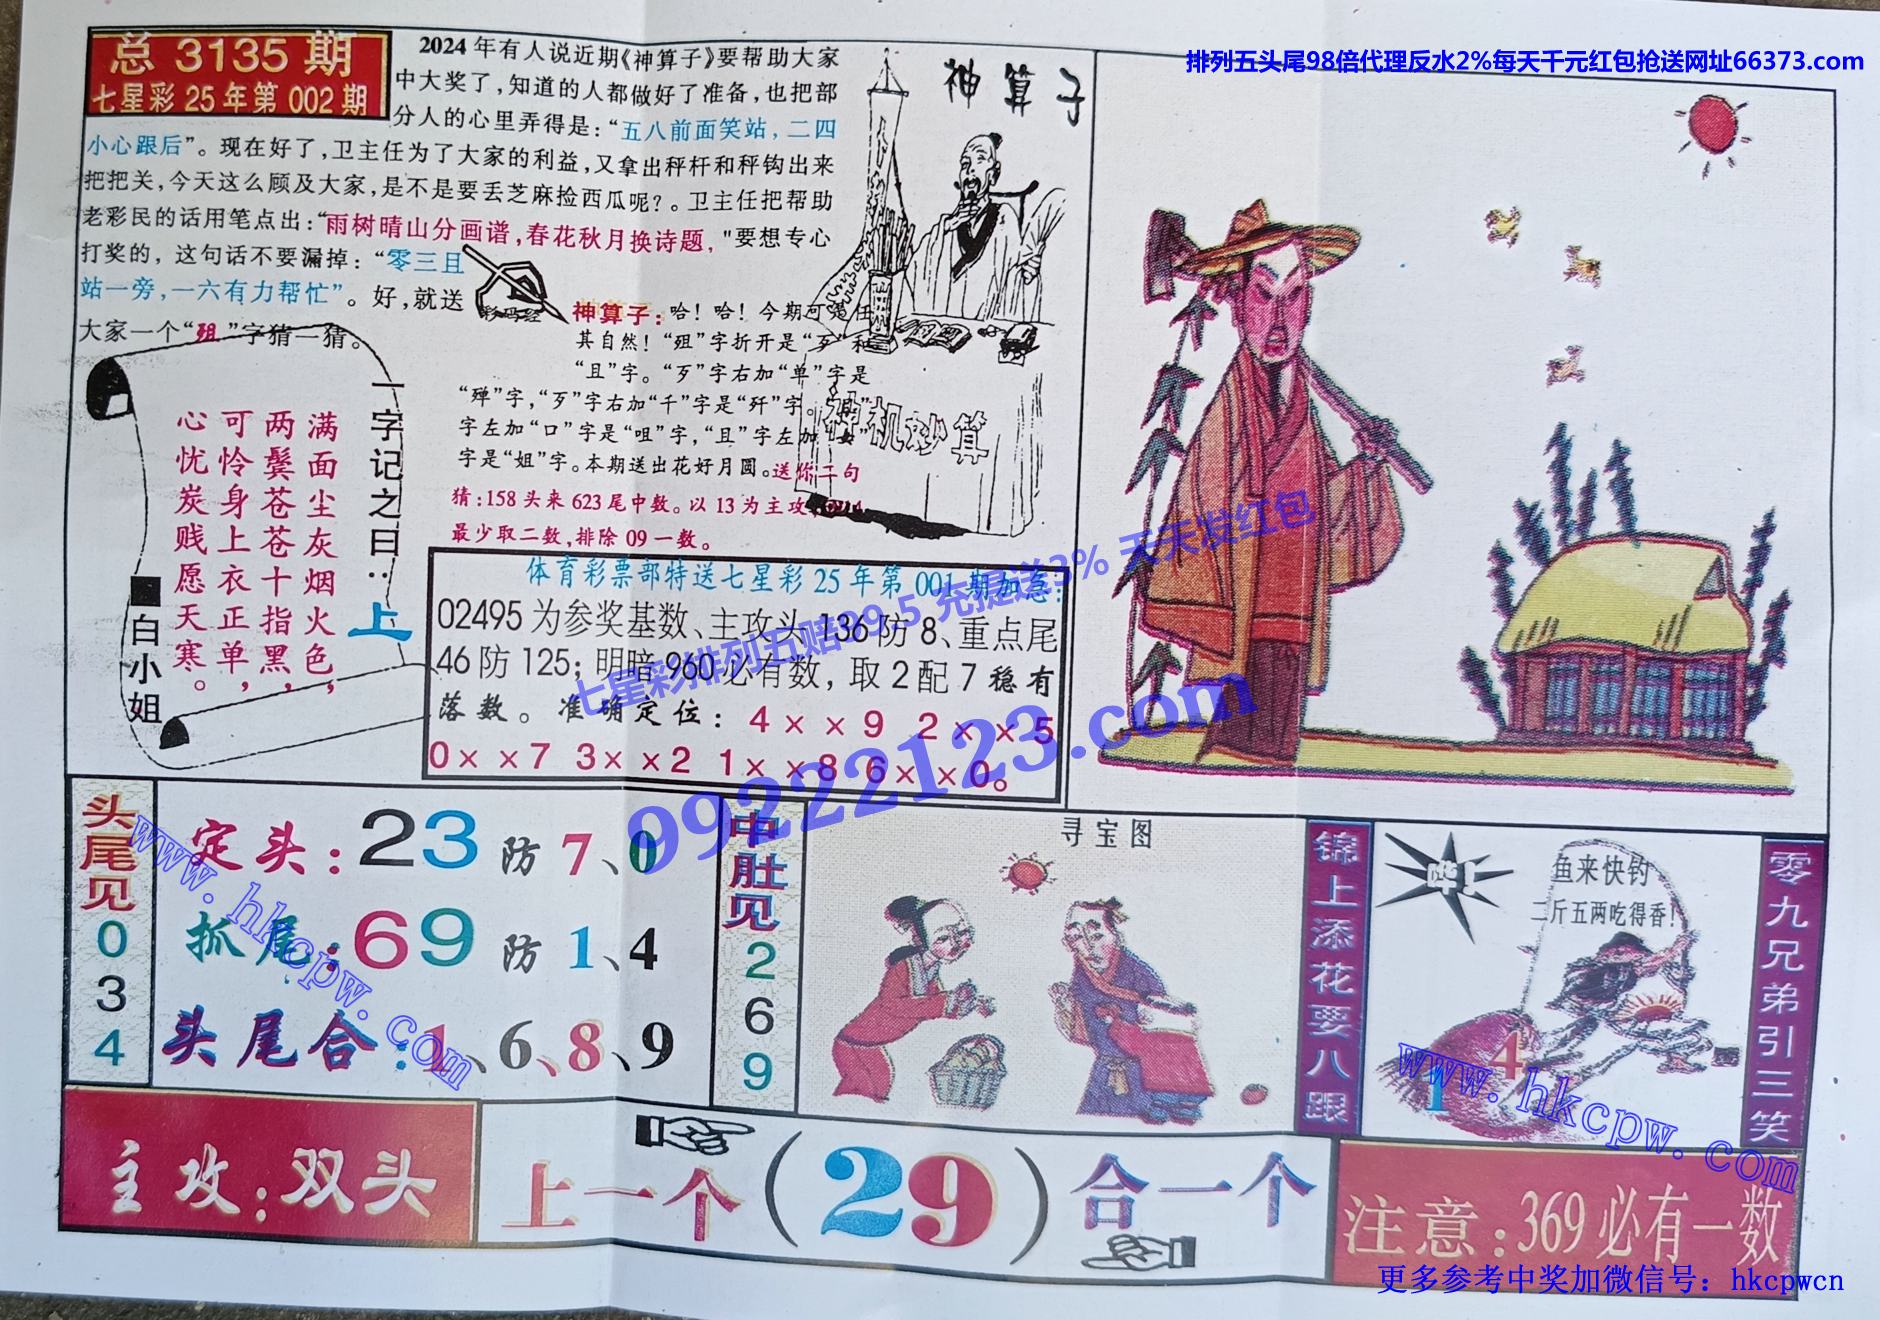 排列五头尾98倍代理反水2%每天千元红包抢送网址66373.com
总 3135 期
七星彩 25 年第 002 期
2024 年有人说近期《神算子》要帮助大家
中大奖了，知道的人都做好了准备，也把部
分人的心里弄得是：“五八前面笑站，二四
小心跟后”。现在好了，卫主任为了大家的利益，又拿出秤杆和秤钩出来
把把关，今天这么顾及大家，是不是要丢芝麻捡西瓜呢？。卫主任把帮助
老彩民的话用笔点出：“雨树晴山分画谱，春花秋月换诗题，"要想专心
打奖的，这句话不要漏掉：“零三且
站一旁，一六有力帮忙”。好，就送
大家一个“殂”字猜一猜。
神算子
神算子：哈！哈！今期可是任
其自然！“殂”字折开是“歹”和
“且”字。“歹”字右加“单”字是
“殚”字，“歹”字右加“千”字是“歼”字。
字左加“口”字是“咀”字，“且”字左加“女”
字是“姐”字。本期送出花好月圆。送你二句
猜：158 头来 623 尾中数。以 13 为主攻，
最少取二数，排除 09 一数。
神机妙算
一字记之曰：上
满面尘灰烟火色，
两鬓苍苍十指黑，
可怜身上衣正单，
心忧炭贱愿天寒。
■白小姐
体育彩票部特送七星彩 25 年第 001 期加急：
02495 为参奖基数、主攻头 136 防 8、重点尾
46 防 125；明暗 960 必有数，取 2 配 7 稳有
落数。准确定位：4××9 2××5
0××7 3××2 1××8 6××0。
七星彩排列五赔99.5 充提送3% 天天发红包
99222123.com
头尾见034
定头：23 防 7、0
抓尾：69 防 1、4
头尾合：1、6、8、9
www.hkcpw.com
中肚见269
寻宝图
锦上添花要八跟
鱼来快钓
二斤五两吃得香！
4
1
www.hkcpw.com
零九兄弟引三笑
主攻：双头
上一个（29）合一个
注意：369 必有一数
更多参考中奖加微信号：hkcpwcn